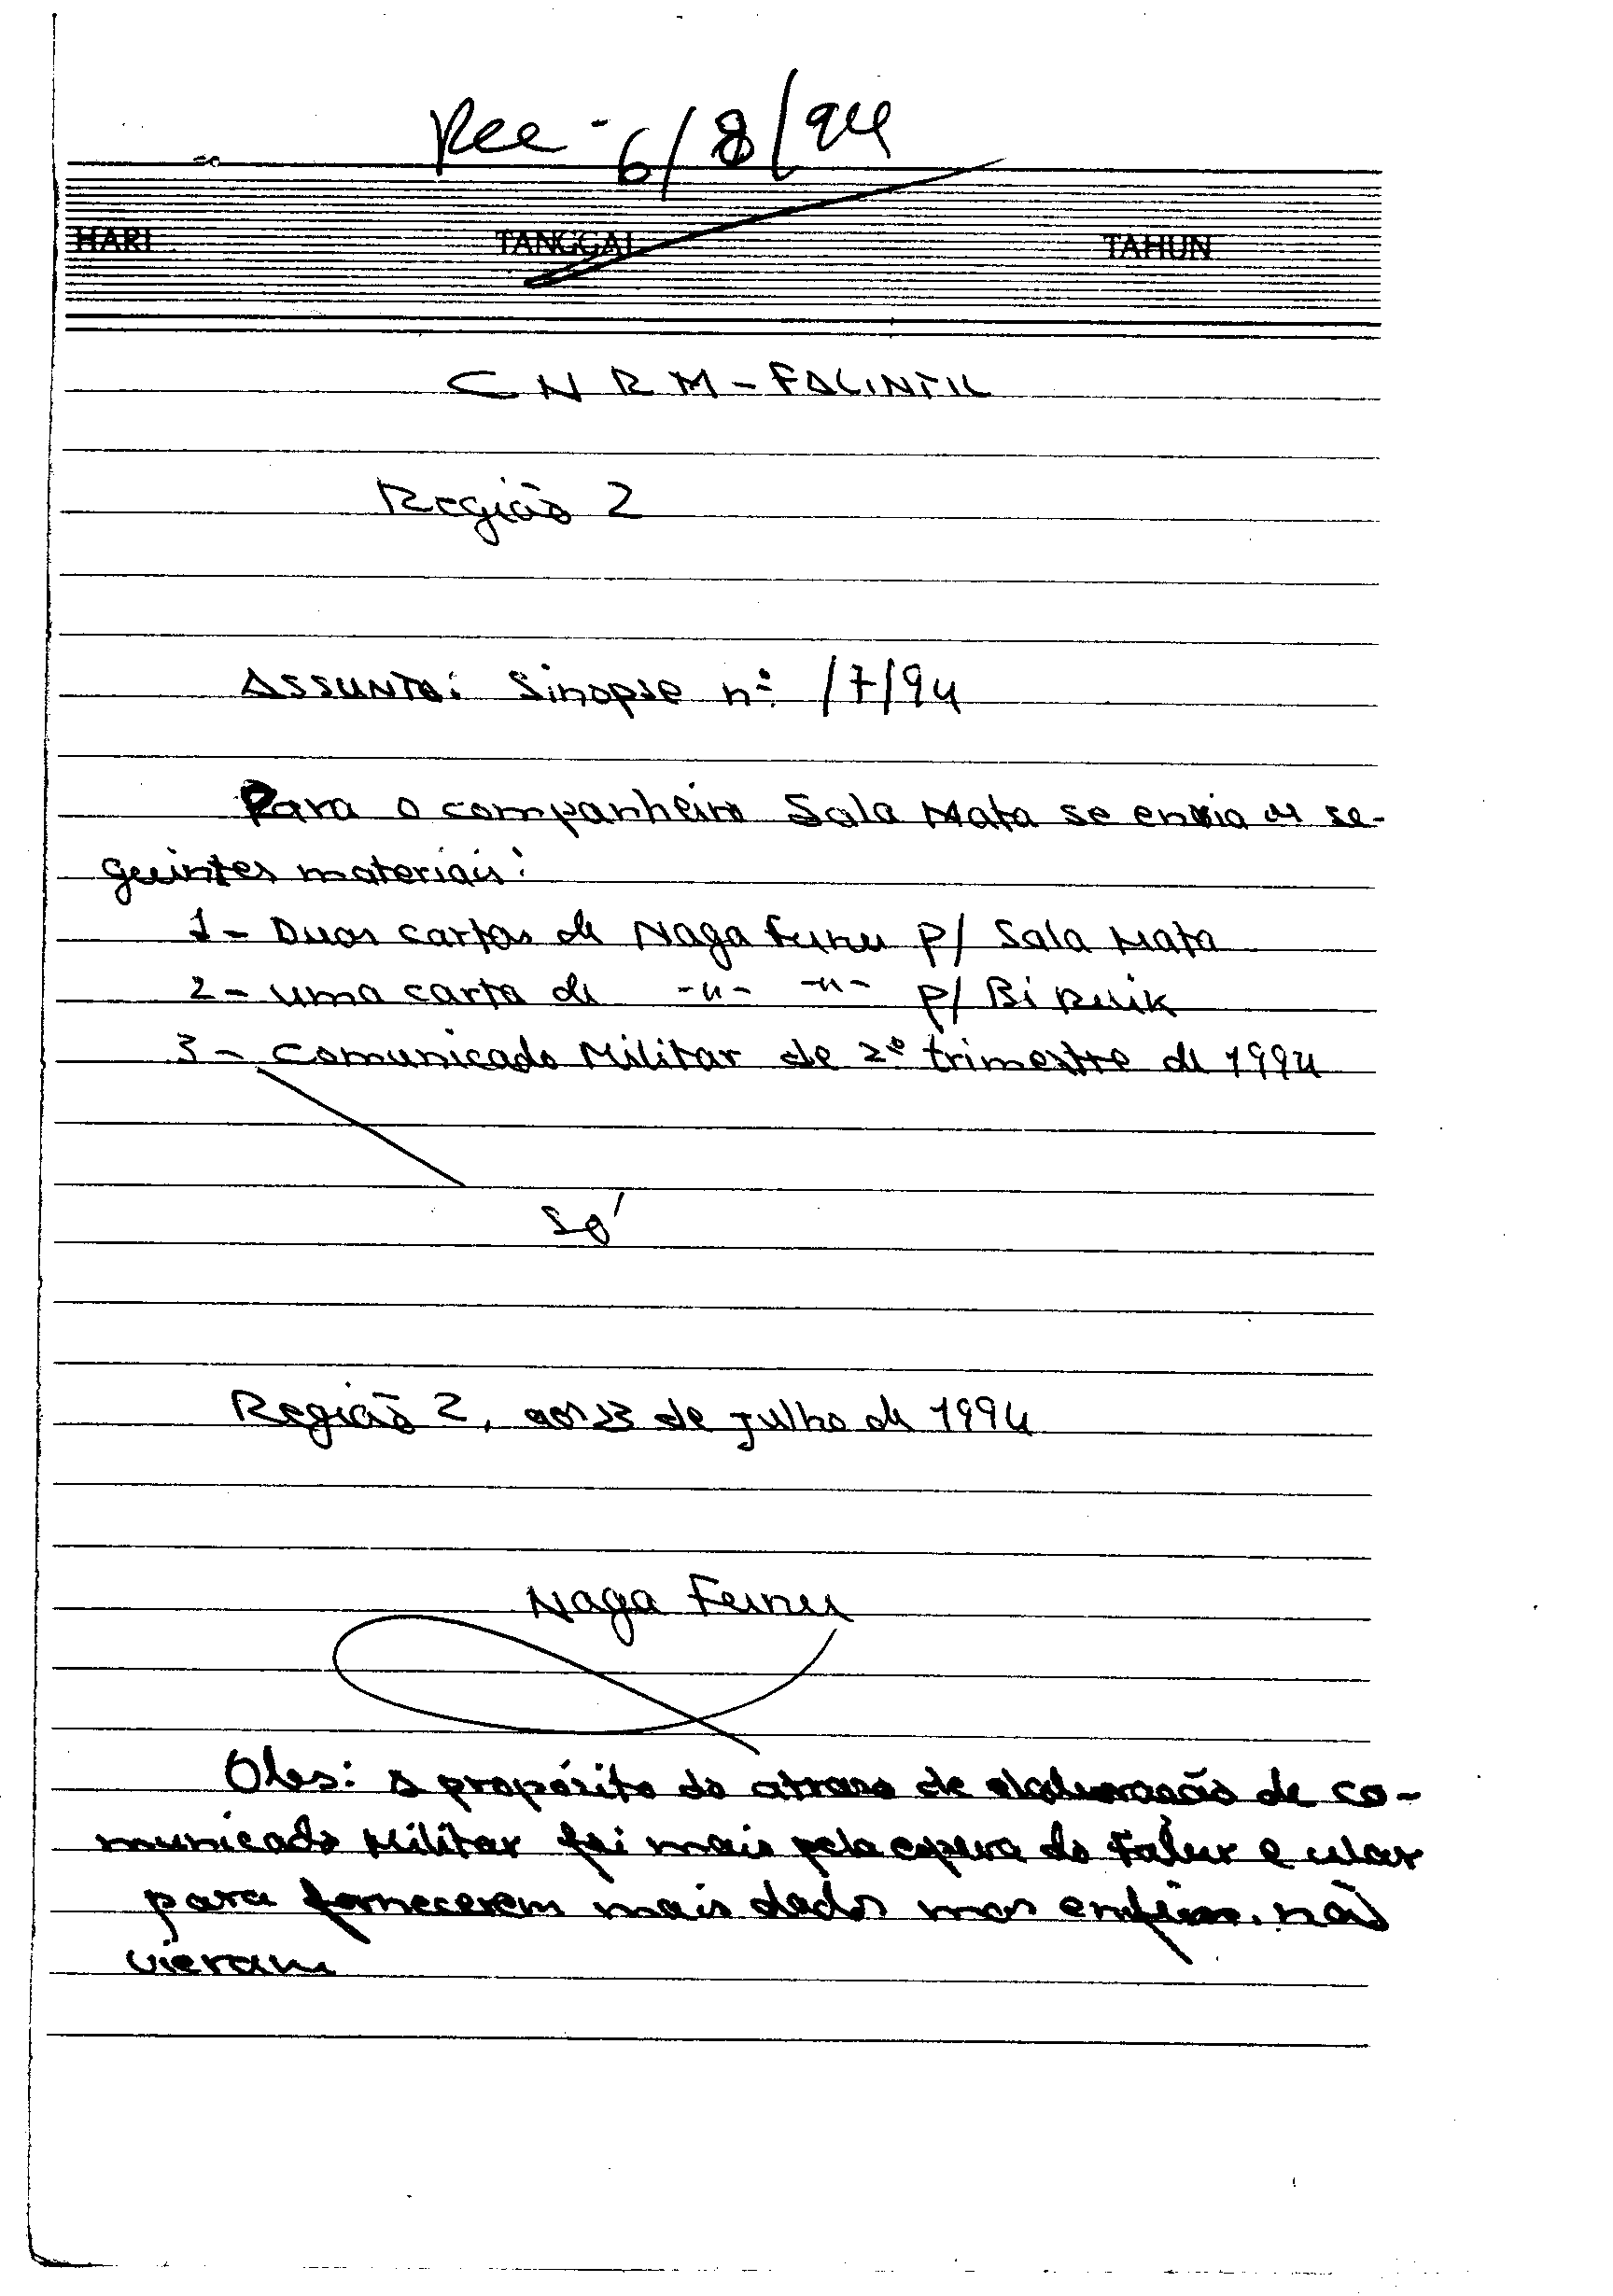 Rec - 6/8/94
HARI TANGGAL TAHUN
CNRM - FALINTIL
Região 2
Assunto: Sinopse nº /7/94
Para o companheiro Sala Mata se envia os se-
guintes materiais:
1 - Duas cartas de Naga Feunu p/ Sala Mata
2 - uma carta de -"- -"- p/ Bi Rusik
3 - Comunicado Militar de 2º trimestre de 1994
Só
Região 2, aos 23 de Julho de 1994
Naga Feunu
Obs: A propósito do atraso de elaboração de co-
municado Militar foi mais pela espera do Falur e Ular
para fornecerem mais dados mas enfim, não
vieram